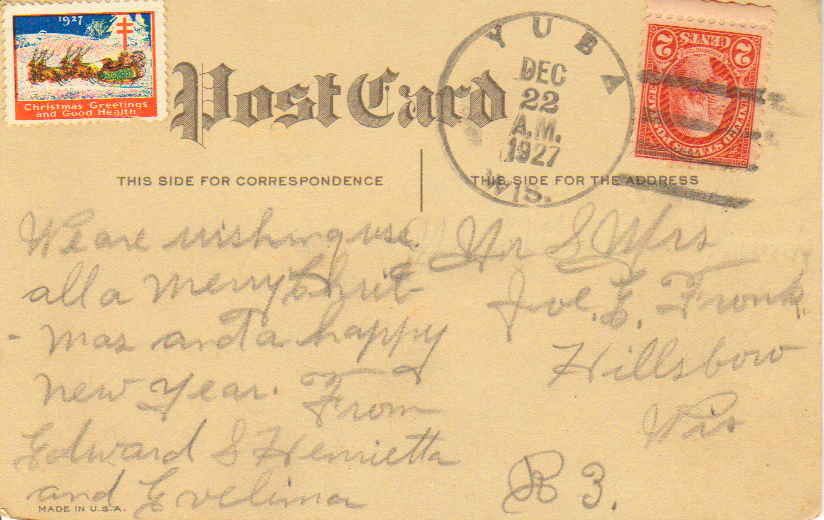 1927
Christmas Greetings
and Good Health
Post Card
YUBA
DEC
22
A.M.
1927
WIS.
2 CENTS 2
UNITED STATES POSTAGE
THIS SIDE FOR CORRESPONDENCE
THIS SIDE FOR THE ADDRESS
We are wishing use
all a merry Christ
-mas and a happy
new year. From
Edward & Henrietta
and Evelina
Mr & Mrs
Joe. E. Fronk
Hillsboro
Wis
R 3.
MADE IN U.S.A.